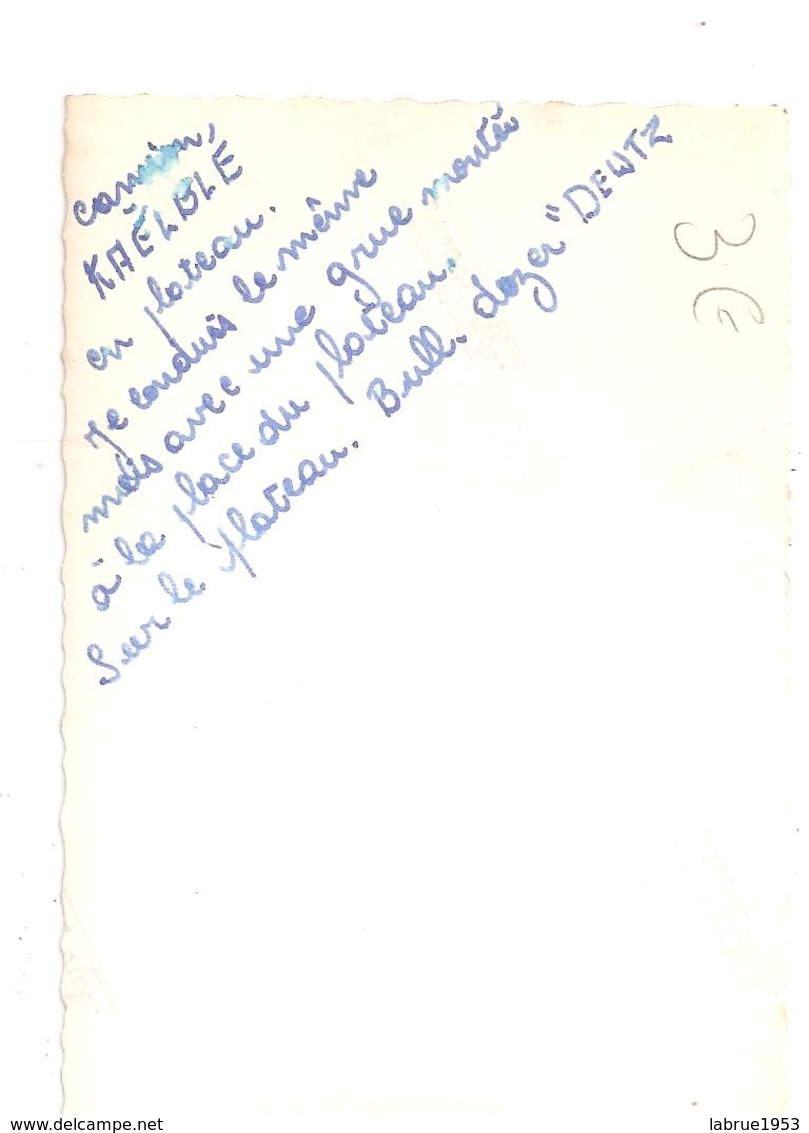 camion,
KAËLBLE
en plateau.
Je conduis le même
mais avec une grue montée
à la place du plateau.
Sur le plateau. Bull-dozer "DEWTZ
3 €
delcampe.net
labrue1953